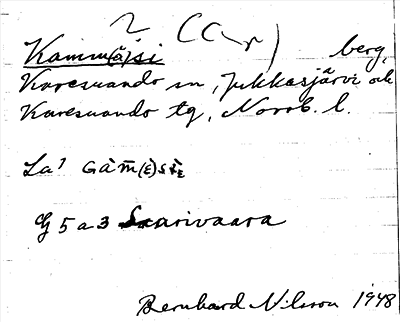 Kamm(ä)si berg,
Karesuando sn, Jukkasjärvi och
Karesuando tg, Norrb. l.
La'
G 5 a 3 Saarivaara
Bernhard Nilsson 1948